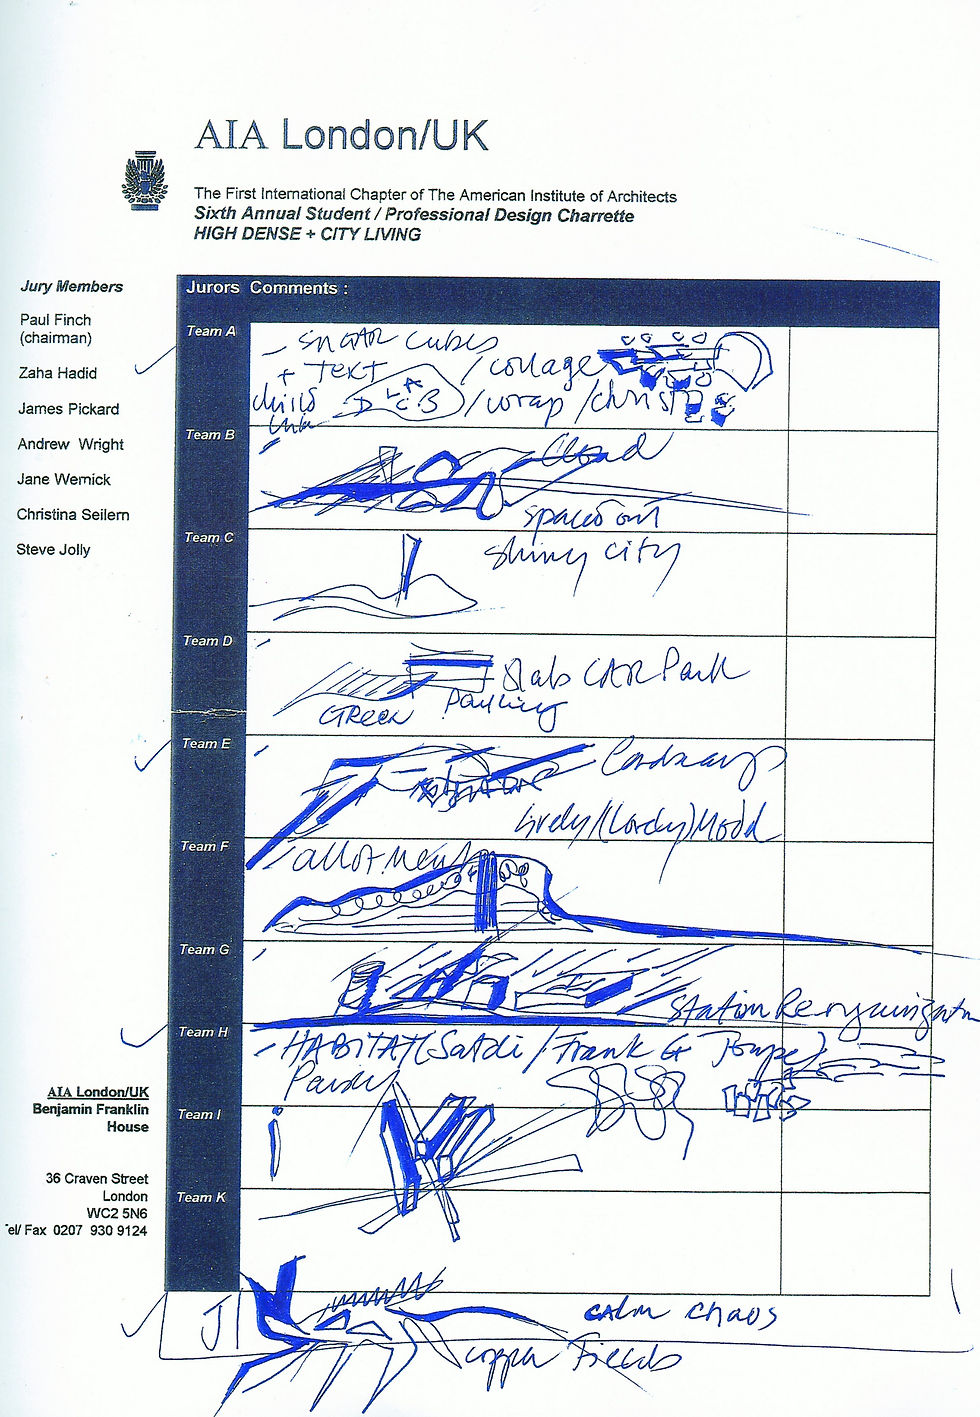 AIA London/UK
The First International Chapter of The American Institute of Architects
Sixth Annual Student / Professional Design Charrette
HIGH DENSE + CITY LIVING
Jury Members
Paul Finch
(chairman)
Zaha Hadid
James Pickard
Andrew Wright
Jane Wernick
Christina Seilern
Steve Jolly
Jurors Comments :
Team A
cubes
+ TEXT / collage
/ wrap / christ
Team B
Cloud
spaced out
Team C
shiny city
Team D
Slab CAR Park
GREEN Parking
Team E
Landscape
lively/
Team F
allotment
Team G
Station
Team H
HABITAT / Frank G
Team I
i
Team K
J
calm chaos
Fields
AIA London/UK
Benjamin Franklin
House
36 Craven Street
London
WC2 5N6
el/ Fax 0207 930 9124